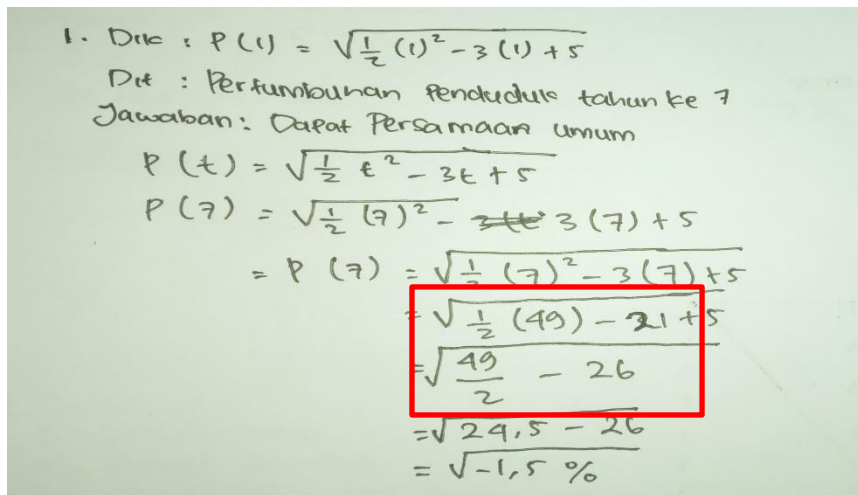 1. Dik : P(1) = √½ (1)² - 3 (1) + 5
Dit : Pertumbuhan Penduduk tahun ke 7
Jawaban : Dapat Persamaan umum
P (t) = √½ t² - 3t + 5
P (7) = √½ (7)² - 3(7) + 5
= P (7) = √½ (7)² - 3(7) + 5
= √½ (49) - 21 + 5
= √49/2 - 26
= √24,5 - 26
= √-1,5 %